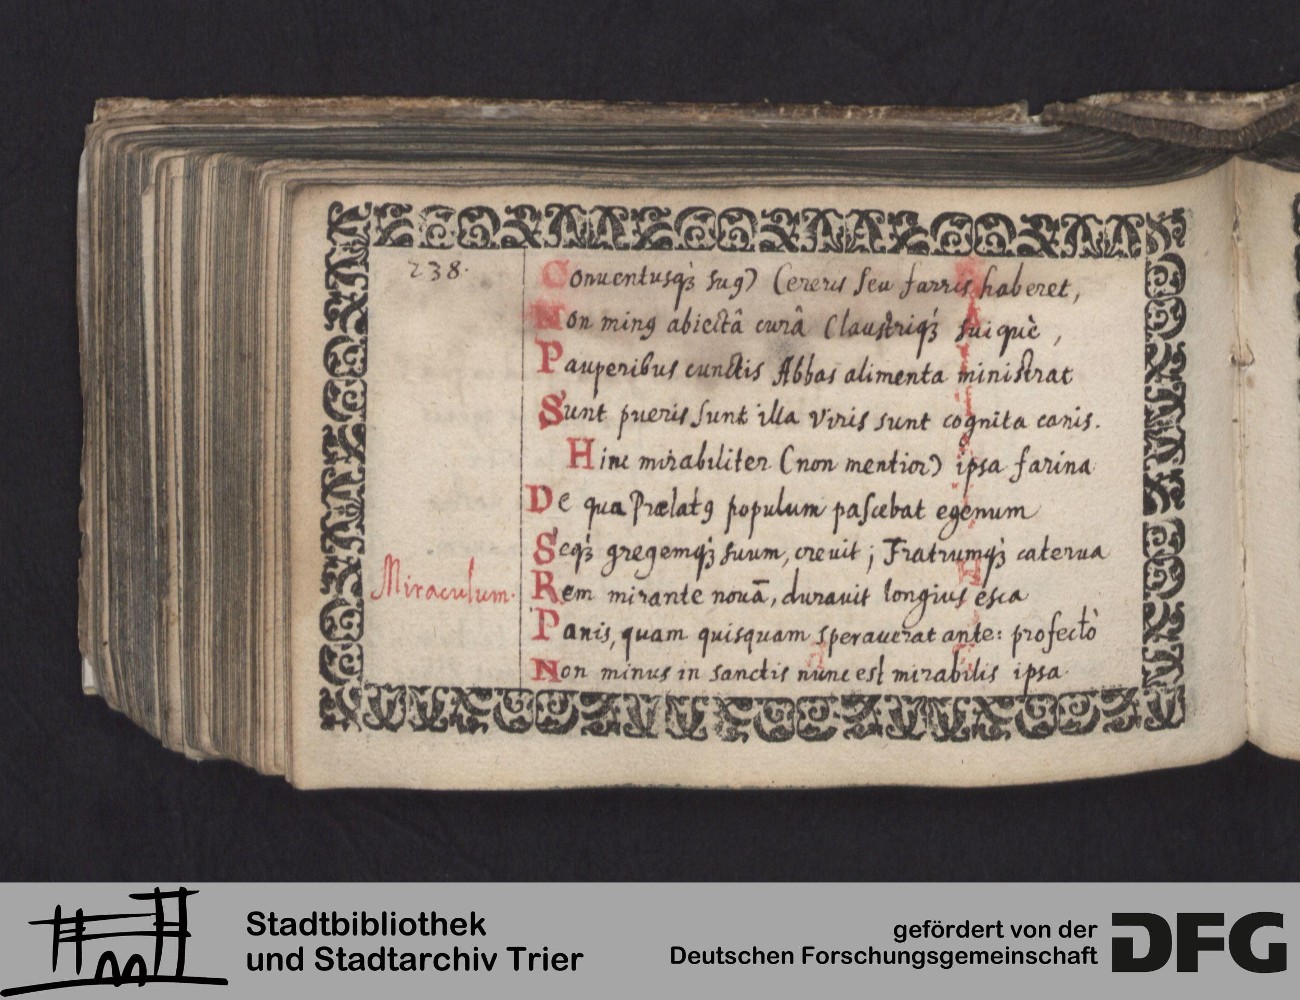 238.
Conuentusq́3 suꝯ) Cereris seu farris haberet,
Non minꝯ abiectâ curâ Claustriq́3 suique,
Pauperibus cunctis Abbas alimenta ministrat
Sunt pueris sunt illa viris sunt cognita canis.
Hinc mirabiliter (non mentior) ipsa farina
De qua Prælatꝯ populum pascebat egenum
Seq́3 gregemq́3 suum, creuit; Fratrumq́3 caterua
Miraculum.
Rem mirante nouā, durauit longius esca
Panis, quam quisquam sperauerat ante: profectò
Non minus in sanctis nunc est mirabilis ipsa
Stadtbibliothek
und Stadtarchiv Trier
gefördert von der
Deutschen Forschungsgemeinschaft
DFG